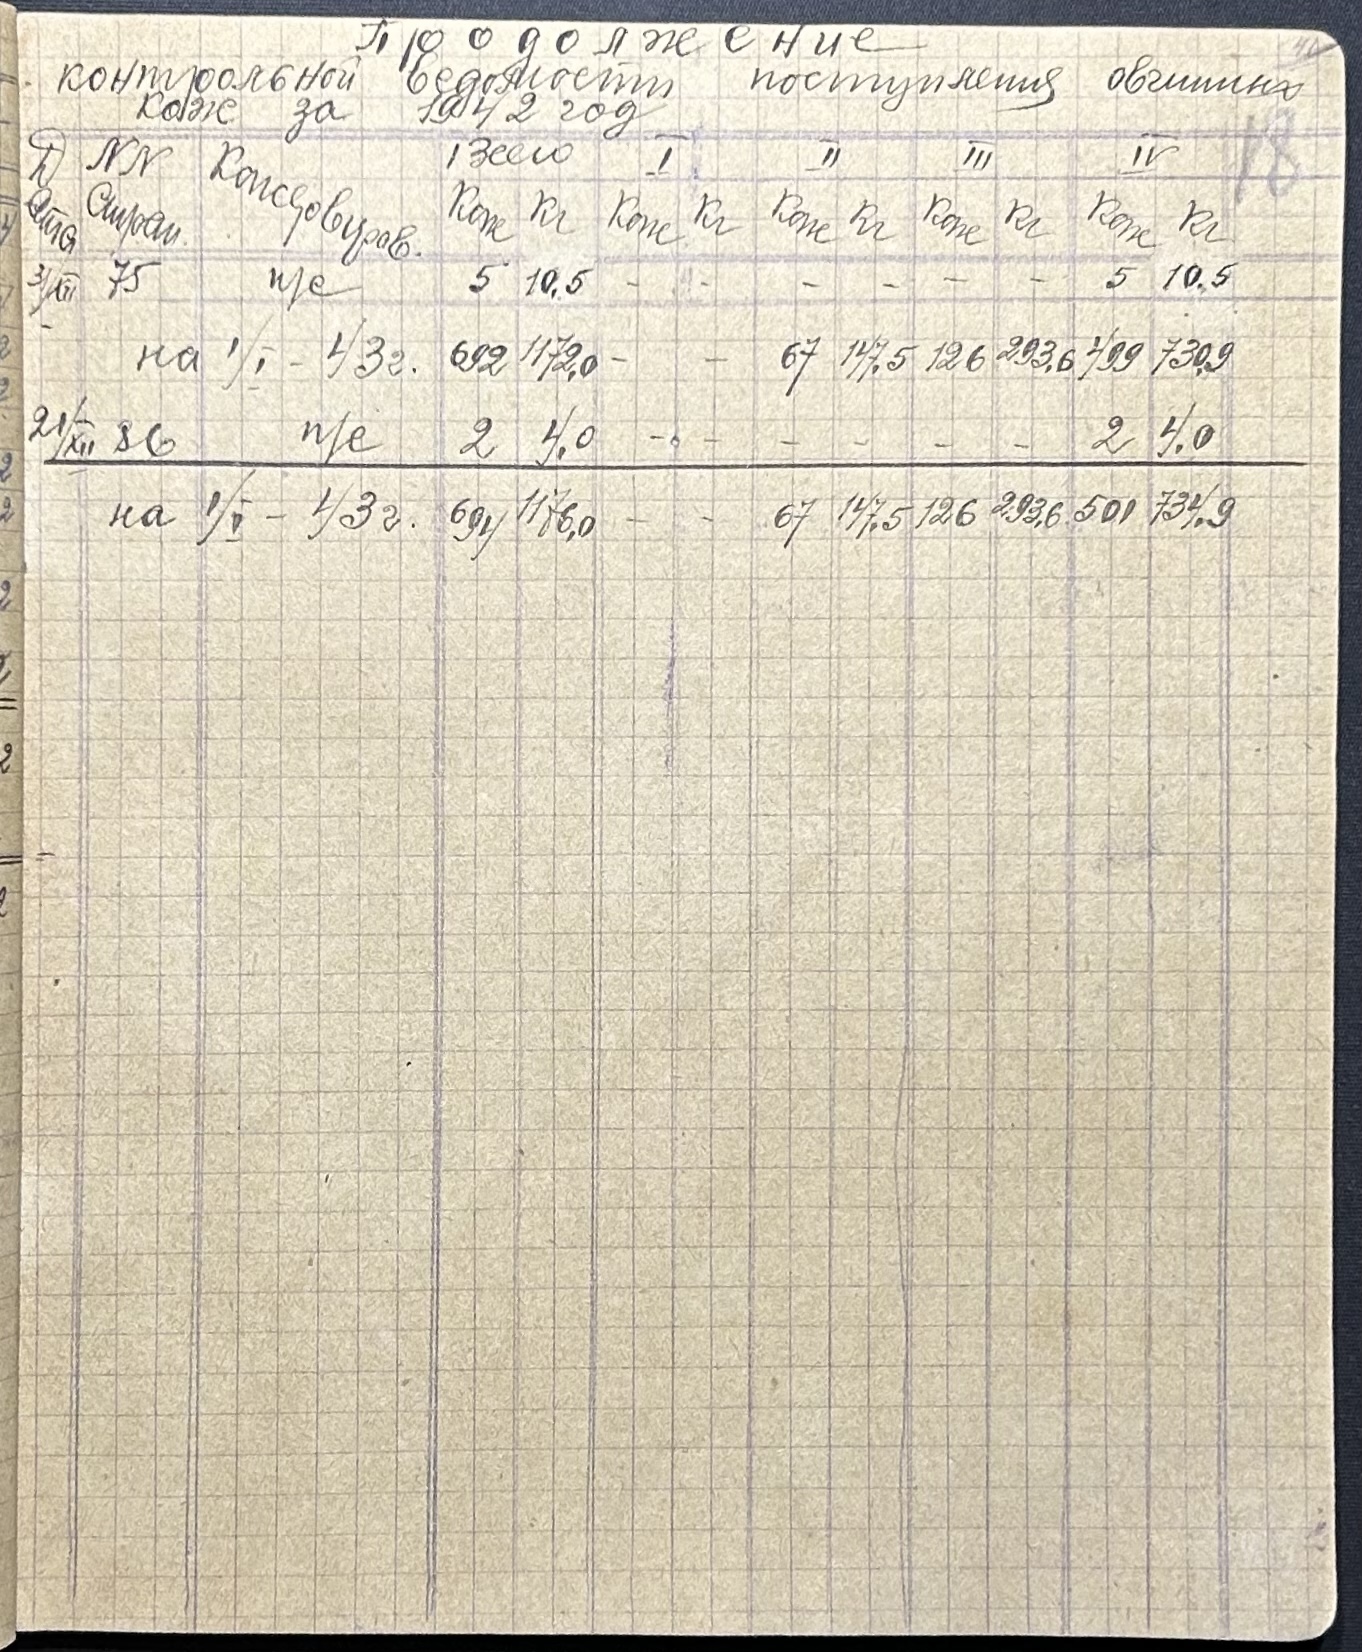 Продолжение
контрольной ведомости поступления овчинных
кож за 1942 год
Дата NN Стран. Консервиров. Всего I II III IV
Кож Кг Кож Кг Кож Кг Кож Кг Кож Кг
3/XII 75 п/с 5 10,5 - - - - - - 5 10,5
на 1/I - 43г. 692 1172,0 - - 67 147,5 126 293,6 499 730,9
21/XII 86 п/с 2 4,0 - - - - - - 2 4,0
на 1/I - 43г. 694 1176,0 - - 67 147,5 126 293,6 501 734,9
18